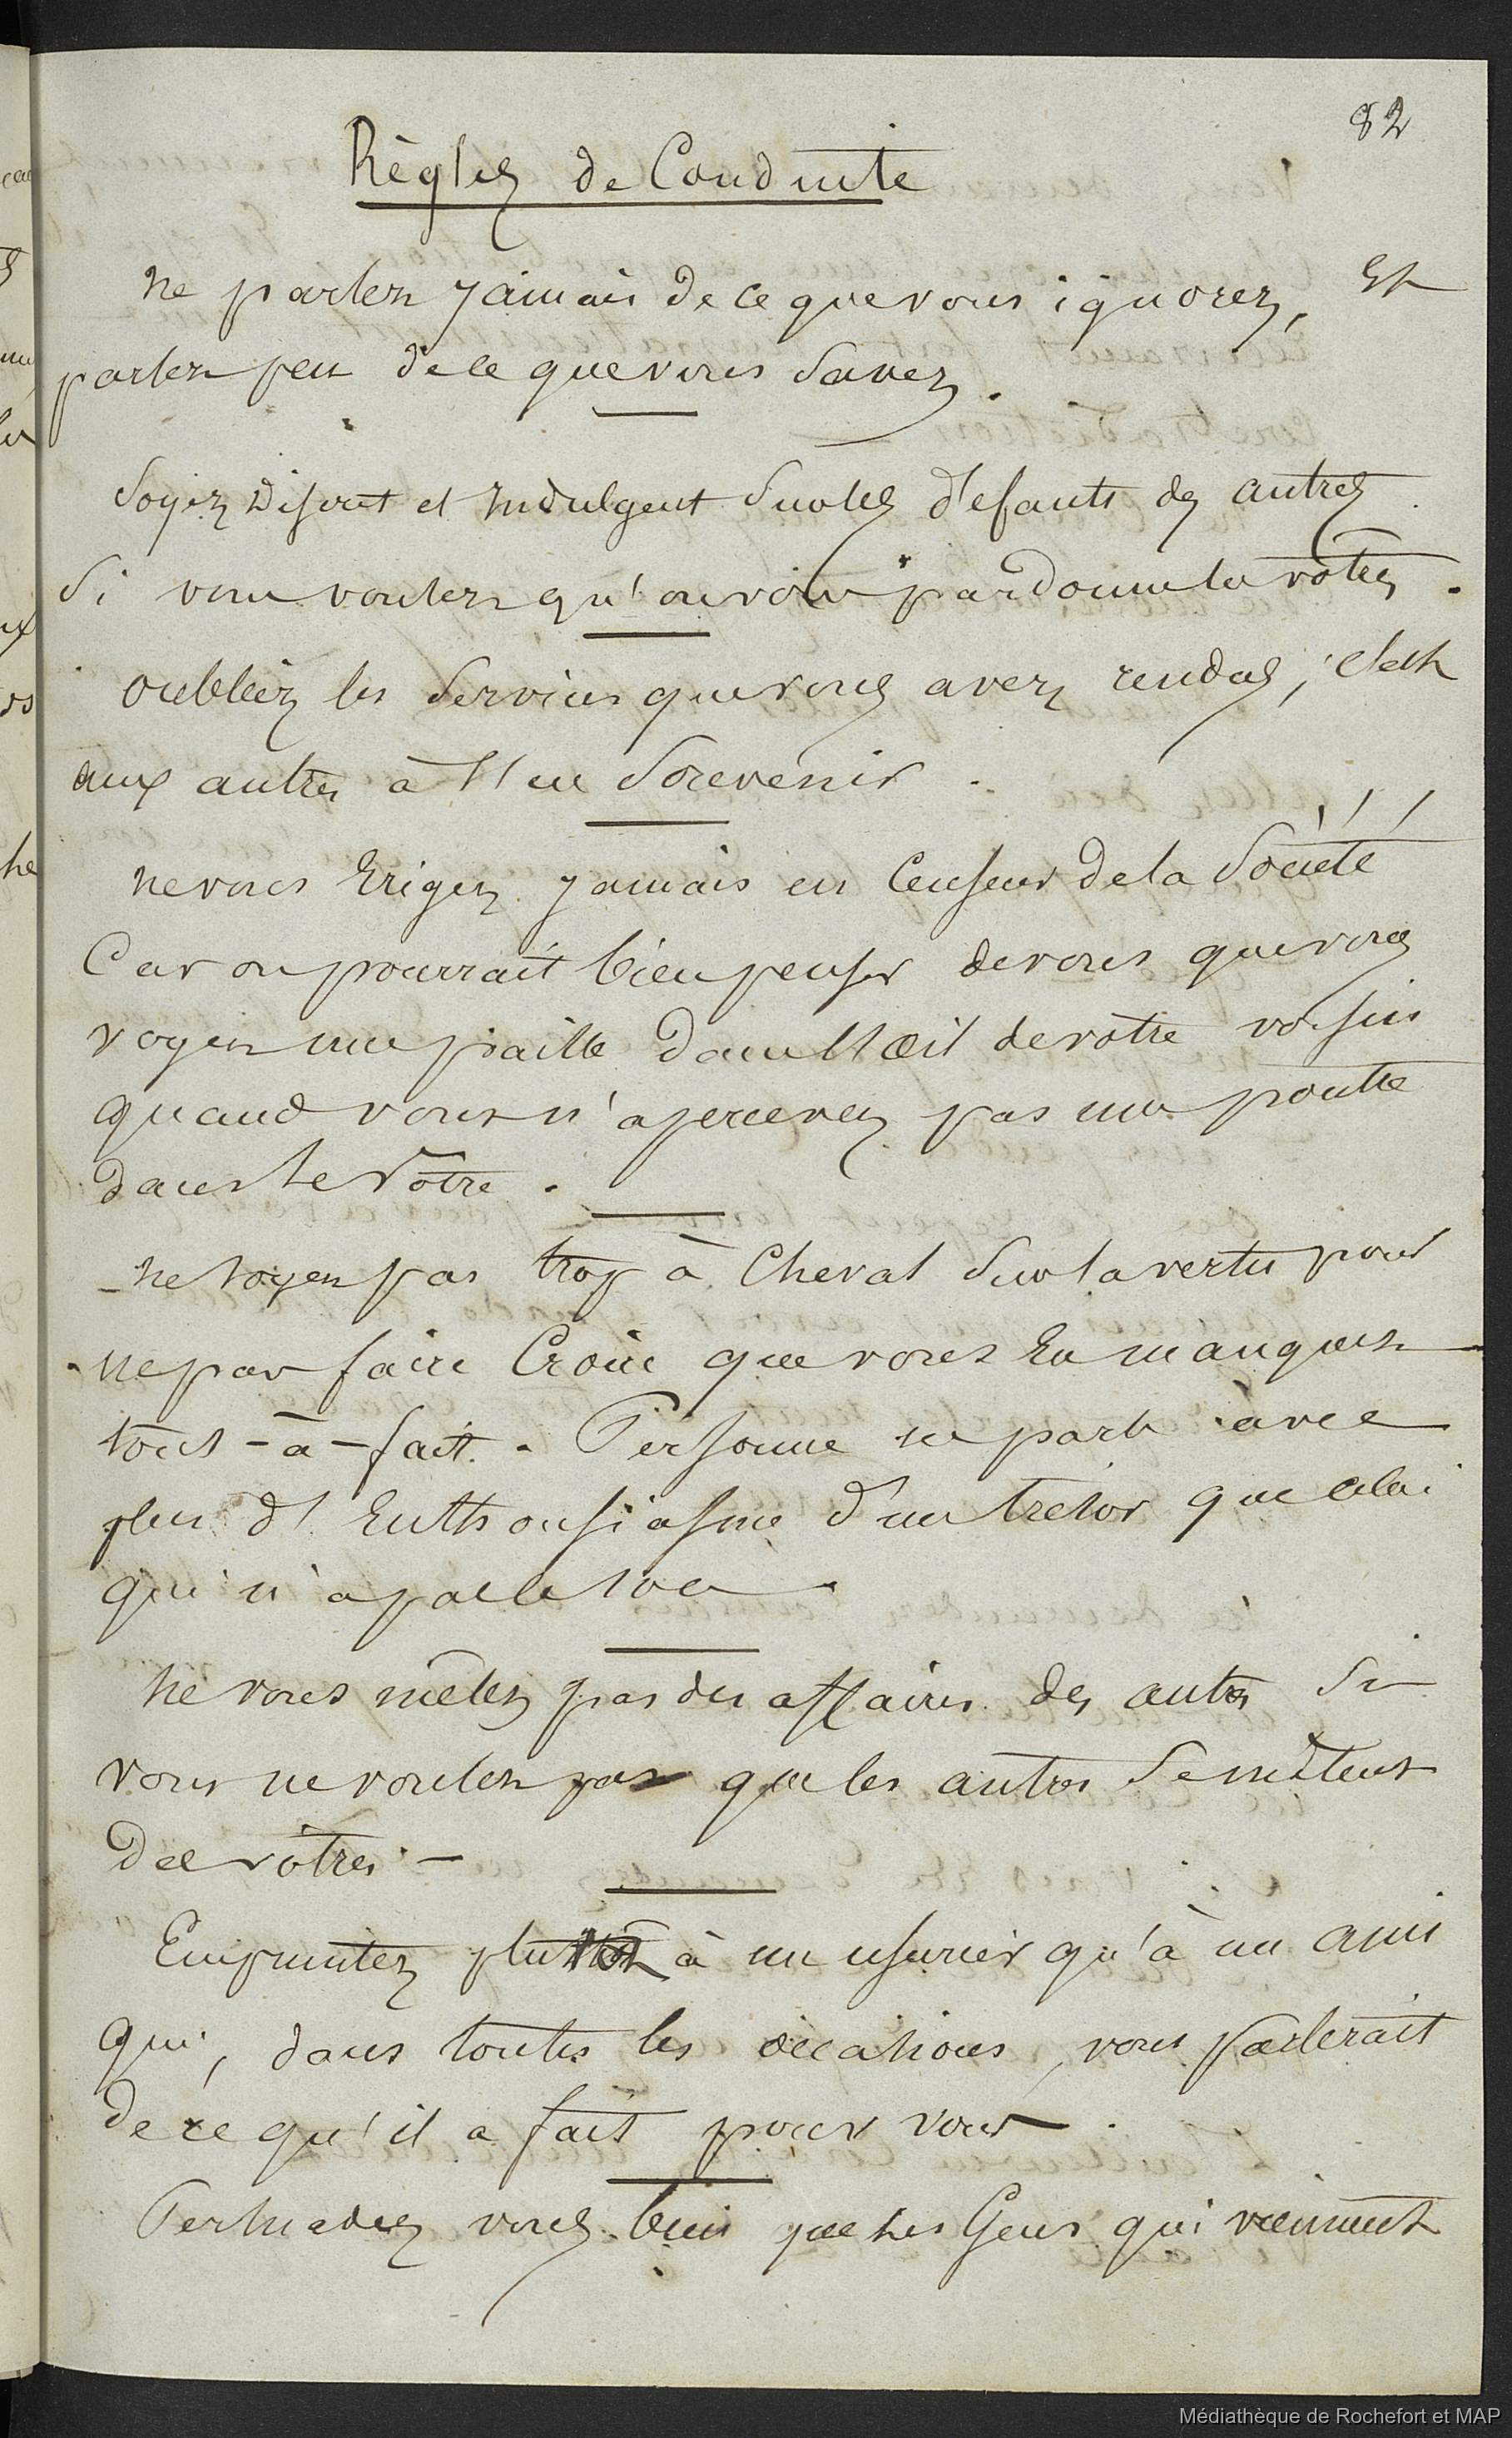 82
Règles de Conduite
ne parlez jamais de ce que vous ignorez, Et
parlez peu de ce que vous savez.
Soyez Discret et Indulgent sur les défauts des autres
Si vous voulez qu'on vous pardonne les votres.
oubliez les services que vous avez rendus, c'est
aux autres à s'en souvenir.
ne vous Erigez jamais en Censeur de la Société
Car on pourrait bien penser de vous que vous
voyez une paille dans l'œil de votre voisin
quand vous n'apercevez pas une poutre
dans le Vôtre.
ne soyez pas trop à Cheval sur la vertu pour
ne pas faire Croire que vous En manquez
tout-à-fait. Personne ne parle avec
plus d'Enthousiasme d'un tresor que celui
qui n'a pas le sou.
ne vous mêlez pas des affaires des autres Si
vous ne voulez pas que les autres se mêlent
des vôtres.
Empruntez plutôt à un usurier qu'à un ami
qui, dans toutes les occasions, vous parlerait
de ce qu'il a fait pour vous.
Persuadez vous bien que les Gens qui viennent
Médiathèque de Rochefort et MAP